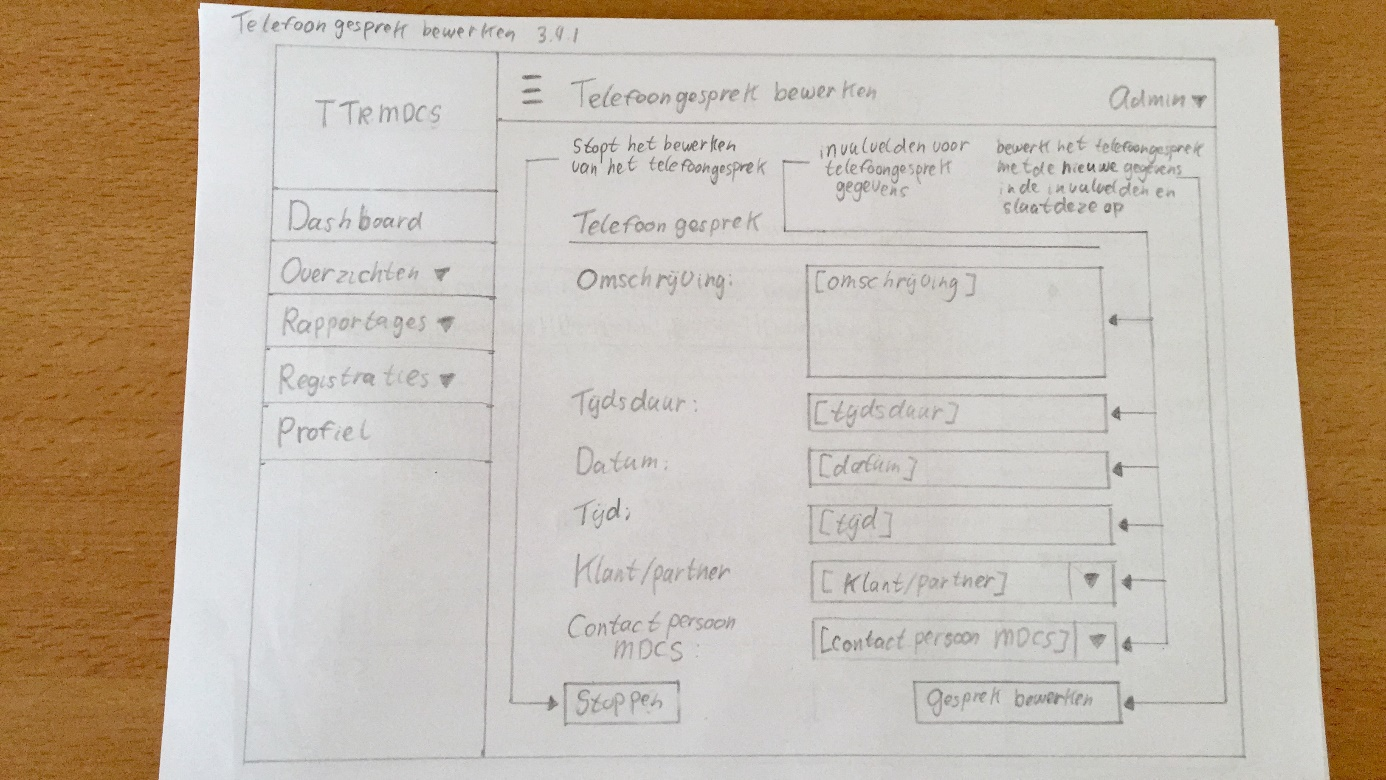 Telefoongesprek bewerken 3.4.1
TTRMDCS
Telefoongesprek bewerken
Admin
Dashboard
Overzichten
Rapportages
Registraties
Profiel
Stopt het bewerken
van het telefoongesprek
invulvelden voor
telefoongesprek
gegevens
bewerk het telefoongesprek
met de nieuwe gegevens
in de invulvelden en
slaat deze op
Telefoongesprek
Omschrijving:
[omschrijving]
Tijdsduur:
[tijdsduur]
Datum:
[datum]
Tijd:
[tijd]
Klant/partner
[Klant/partner]
Contactpersoon
MDCS:
[contactpersoon MDCS]
Stoppen
Gesprek bewerken